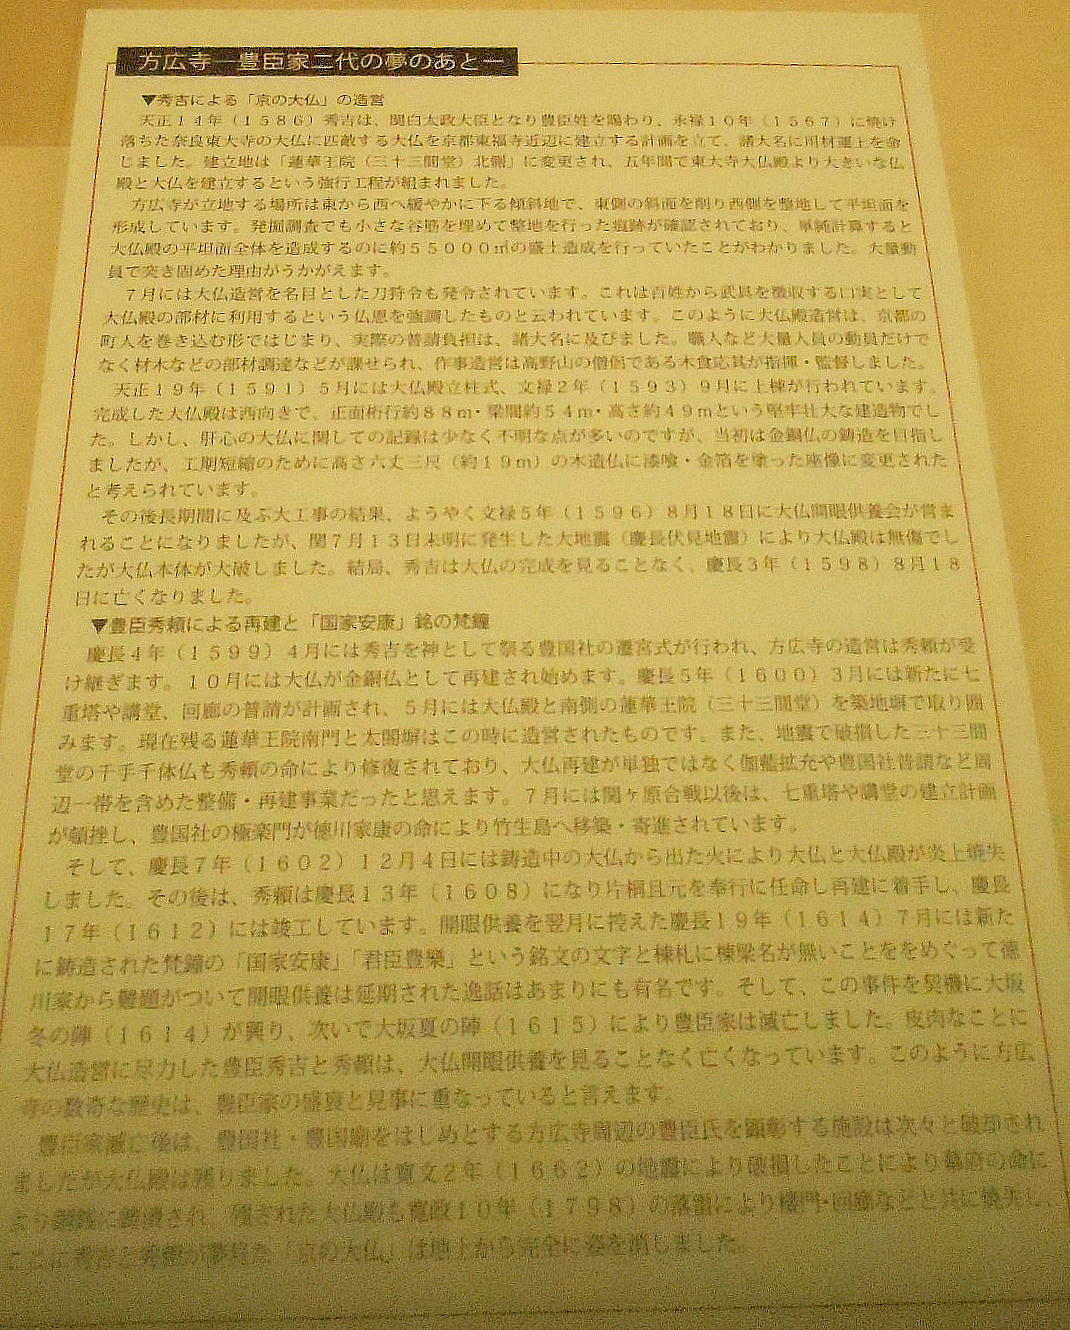 方広寺―豊臣家二代の夢のあと―
▼秀吉による「京の大仏」の造営
天正14年（1586）秀吉は、関白太政大臣となり豊臣姓を賜わり、永禄10年（1567）に焼け
落ちた奈良東大寺の大仏に匹敵する大仏を京都東福寺近辺に建立する計画を立て、諸大名に用材運上を命
じました。建立地は「蓮華王院（三十三間堂）北側」に変更され、五年間で東大寺大仏殿より大きい大仏
殿と大仏を建立するという強行工程が組まれました。
方広寺が立地する場所は東から西へ緩やかに下る傾斜地で、東側の斜面を削り西側を整地して平坦面を
形成しています。発掘調査でも小さな谷筋を埋めて整地を行った痕跡が確認されており、単純計算すると
大仏殿の平坦面全体を造成するのに約55000㎥の盛土造成を行っていたことがわかりました。大量動
員で突き固めた理由がうかがえます。
7月には大仏造営を名目とした刀狩令も発令されています。これは百姓から武具を徴収する口実として
大仏殿の部材に利用するという仏恩を強調したものと云われています。このように大仏殿造営は、京都の
町人を巻き込む形ではじまり、実際の普請負担は、諸大名に及びました。職人など大量人員の動員だけで
なく材木などの部材調達などが課せられ、作事造営は高野山の僧侶である木食応其が指揮・監督しました。
天正19年（1591）5月には大仏殿立柱式、文禄2年（1593）9月に上棟が行われています。
完成した大仏殿は西向きで、正面桁行約88m・梁間約54m・高さ約49mという堅牢壮大な建造物でし
た。しかし、肝心の大仏に関しての記録は少なく不明な点が多いのですが、当初は金銅仏の鋳造を目指し
ましたが、工期短縮のために高さ六丈三尺（約19m）の木造仏に漆喰・金箔を塗った座像に変更された
と考えられています。
その後長期間に及ぶ大工事の結果、ようやく文禄5年（1596）8月18日に大仏開眼供養会が営ま
れることになりましたが、閏7月13日未明に発生した大地震（慶長伏見地震）により大仏殿は無傷でし
たが大仏本体が大破しました。結局、秀吉は大仏の完成を見ることなく、慶長3年（1598）8月18
日に亡くなりました。
▼豊臣秀頼による再建と「国家安康」銘の梵鐘
慶長4年（1599）4月には秀吉を神として祭る豊国社の遷宮式が行われ、方広寺の造営は秀頼が受
け継ぎます。10月には大仏が金銅仏として再建され始めます。慶長5年（1600）3月には新たに七
重塔や講堂、回廊の普請が計画され、5月には大仏殿と南側の蓮華王院（三十三間堂）を築地塀で取り囲
みます。現在残る蓮華王院南門と太閤塀はこの時に造営されたものです。また、地震で破損した三十三間
堂の千手千体仏も秀頼の命により修復されており、大仏再建が単独ではなく伽藍拡充や豊国社普請など周
辺一帯を含めた整備・再建事業だったと思えます。7月には関ヶ原合戦以後は、七重塔や講堂の建立計画
が頓挫し、豊国社の極楽門が徳川家康の命により竹生島へ移築・寄進されています。
そして、慶長7年（1602）12月4日には鋳造中の大仏から出た火により大仏と大仏殿が炎上焼失
しました。その後は、秀頼は慶長13年（1608）になり片桐且元を奉行に任命し再建に着手し、慶長
17年（1612）には竣工しています。開眼供養を翌月に控えた慶長19年（1614）7月には新た
に鋳造された梵鐘の「国家安康」「君臣豊樂」という銘文の文字と棟札に棟梁名が無いことををめぐって徳
川家から難題がついて開眼供養は延期された逸話はあまりにも有名です。そして、この事件を契機に大坂
冬の陣（1614）が興り、次いで大坂夏の陣（1615）により豊臣家は滅亡しました。皮肉なことに
大仏造営に尽力した豊臣秀吉と秀頼は、大仏開眼供養を見ることなく亡くなっています。このように方広
寺の数奇な歴史は、豊臣家の盛衰と見事に重なっていると言えます。
豊臣家滅亡後は、豊国社・豊国廟をはじめとする方広寺周辺の豊臣氏を顕彰する施設は次々と破却され
ましたが大仏殿は残りました。大仏は寛文2年（1662）の地震により破損したことにより幕府の命に
より銅銭に鋳潰され、残された大仏殿も寛政10年（1798）の落雷により楼門・回廊などと共に焼失し、
ここに秀吉と秀頼が夢見た「京の大仏」は地上から完全に姿を消しました。